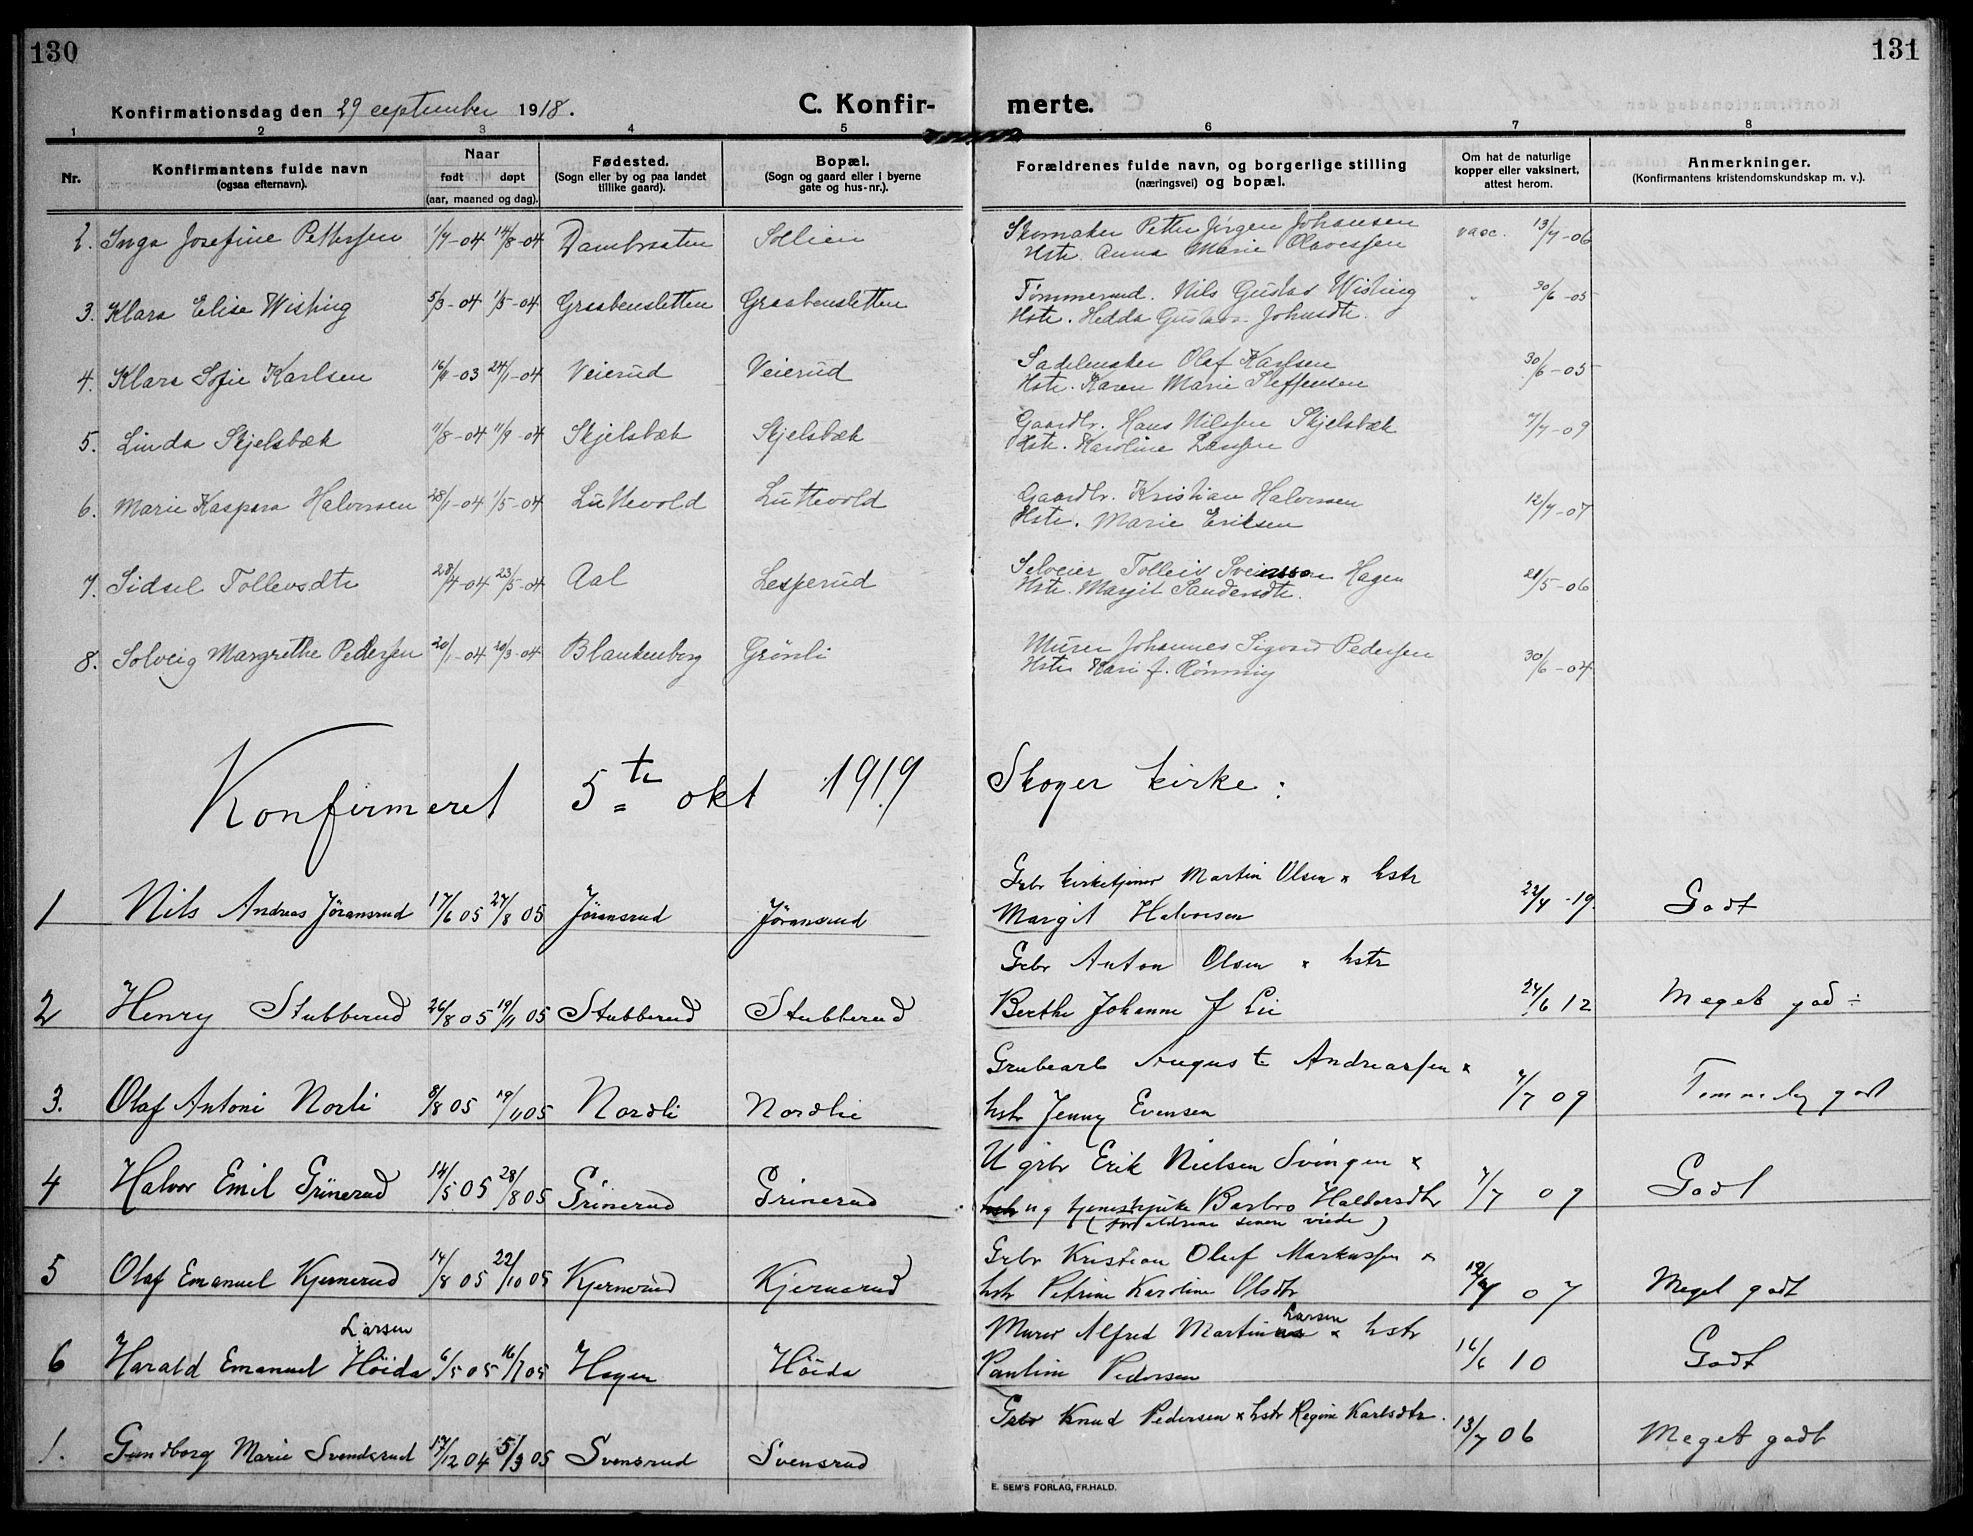 130
131
Konfirmationsdag den 29 september 1918.
C. Konfir-
merte.
1 2 3 4 5 6 7 8
Nr.
Konfirmantens fulde navn
(ogsaa efternavn).
Naar
født døpt
(aar, maaned og dag).
Fødested.
(Sogn eller by og paa landet
tillike gaard).
Bopæl.
(Sogn og gaard eller i byerne
gate og hus-nr.).
Forældrenes fulde navn, og borgerlige stilling
(næringsvei) og bopæl.
Om hat de naturlige
kopper eller vaksinert,
attest herom.
Anmerkninger.
(Konfirmantens kristendomskundskap m. v.).
2. Inga Josefine Pettersen 1/7-04 14/8-04 Dambraaten Sollien Skomaker Petter Jørgen Johansen vacc. 13/7-06
Hstr. Anna Marie Olavessen
3. Klara Elise Wisting 5/3-04 1/5-04 Graabensletten Graabensletten Tømmermd. Nils Gustav Wisting " 30/6-05
Hstr. Hedda Gustava Johnsdtr.
4. Klara Sofie Karlsen 16/11-03 24/1-04 Veierud Veierud Sadelmaker Olaf Karlsen 30/6-05
Hstr. Karen Marie Steffensen
5. Linda Skjelsbæk 11/8-04 11/9-04 Skjelsbæk Skjelsbæk Gaardbr. Hans Nilssen Skjelsbæk 7/7-09
Hstr. Karoline Larssen
6. Marie Kaspara Halvorsen 28/1-04 1/5-04 Luttevold Luttevold Gaardbr. Kristian Halvorsen 12/7-07
Hstr. Marie Eriksen
7. Sidsel Tollevsdtr 28/4-04 23/5-04 Aal Lesperud Selveier Tolleiv Sveinsson Hagen 21/5-06
Hstr. Margit Sandersdtr.
8. Solveig Margrethe Pedersen 20/1-04 20/3-04 Blankenborg Grønli Murer Johannes Sigvard Pedersen 30/6-04
Hstr Kari J. Rønning
Konfirmeret 5te okt 1919 Skoger kirke:
1 Nils Andreas Jøransrud 17/6 05 27/8 05 Jøransrud Jøransrud Grbr kirketjener Martin Olsen x hstr 22/4-19. Godt
Margit Halvorsen
2 Henry Stubberud 26/8 05 19/11 05 Stubberud Stubberud Grbr Anton Olsen x hstr 24/6 12 Meget god ÷
Berthe Johanne J Lie
3. Olaf Antoni Norli 8/8 05 19/11 05 Nordli Nordlie Grubearb August Andreassen x 7/7 09 Temmelig godt
hstr Jenny Evensen
4 Halvor Emil Grinerud 14/5 05 28/8 05 Grinerud Grinerud U grbr Erik Nielsen Svingen x 7/7 09 Godt
ug tjenestpike Barbro Haldorsdtr
(forældrene senere viede)
5 Olaf Emanuel Kjernerud 14/8 05 22/10 05 Kjernerud Kjernerud Grbr Kristian Oluf Markussen x 12/7 07 Meget godt
hstr Petrine Karoline Olsdtr
6 Harald Emanuel Larsen Höida 6/5 05 16/7 05 Hagen Höida Murer Alfred Martin Larsen x hstr 16/6 10 Godt
Pauline Pedersen
1. Gundborg Marie Svendsrud 17/12 04 5/3 05 Svensrud Svensrud Grbr Knud Pedersen x hstr Regine Karlsdtr. 13/7 06 Meget godt
E. SEM'S FORLAG, FR.HALD.